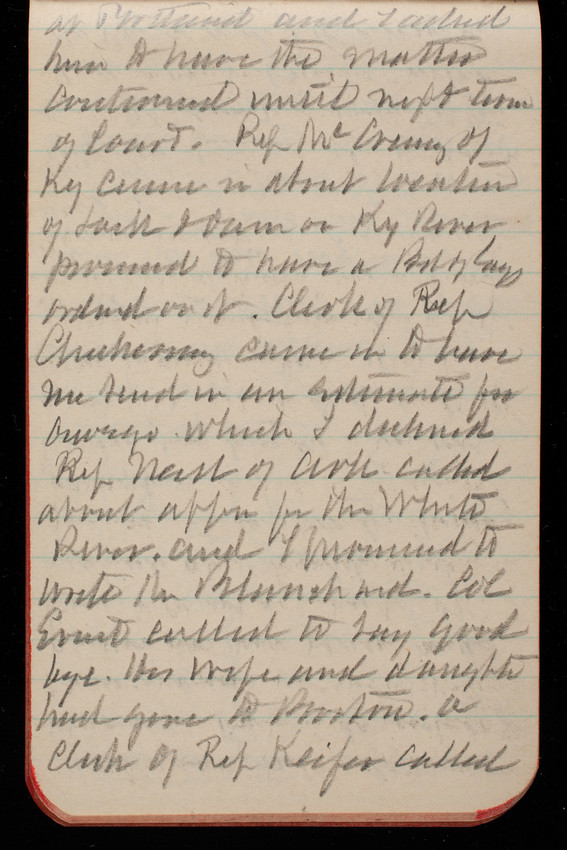 at Portland and I asked
him to have the matter
continued until next term
of Court. Rep Mc Creary of
Ky came in about location
of Lock & Dam on Ky River
promised to have a Bd of Engs
ordered on it. Clerk of Rep
came in to have
me send in an estimate for
Oswego which I declined
Rep Neill of Ark called
about appn for the White
River. and I promised to
write Mr Blanchard. Col
called to say good
bye. His wife and daughter
had gone to Boston. a
Clerk of Rep Keifer called